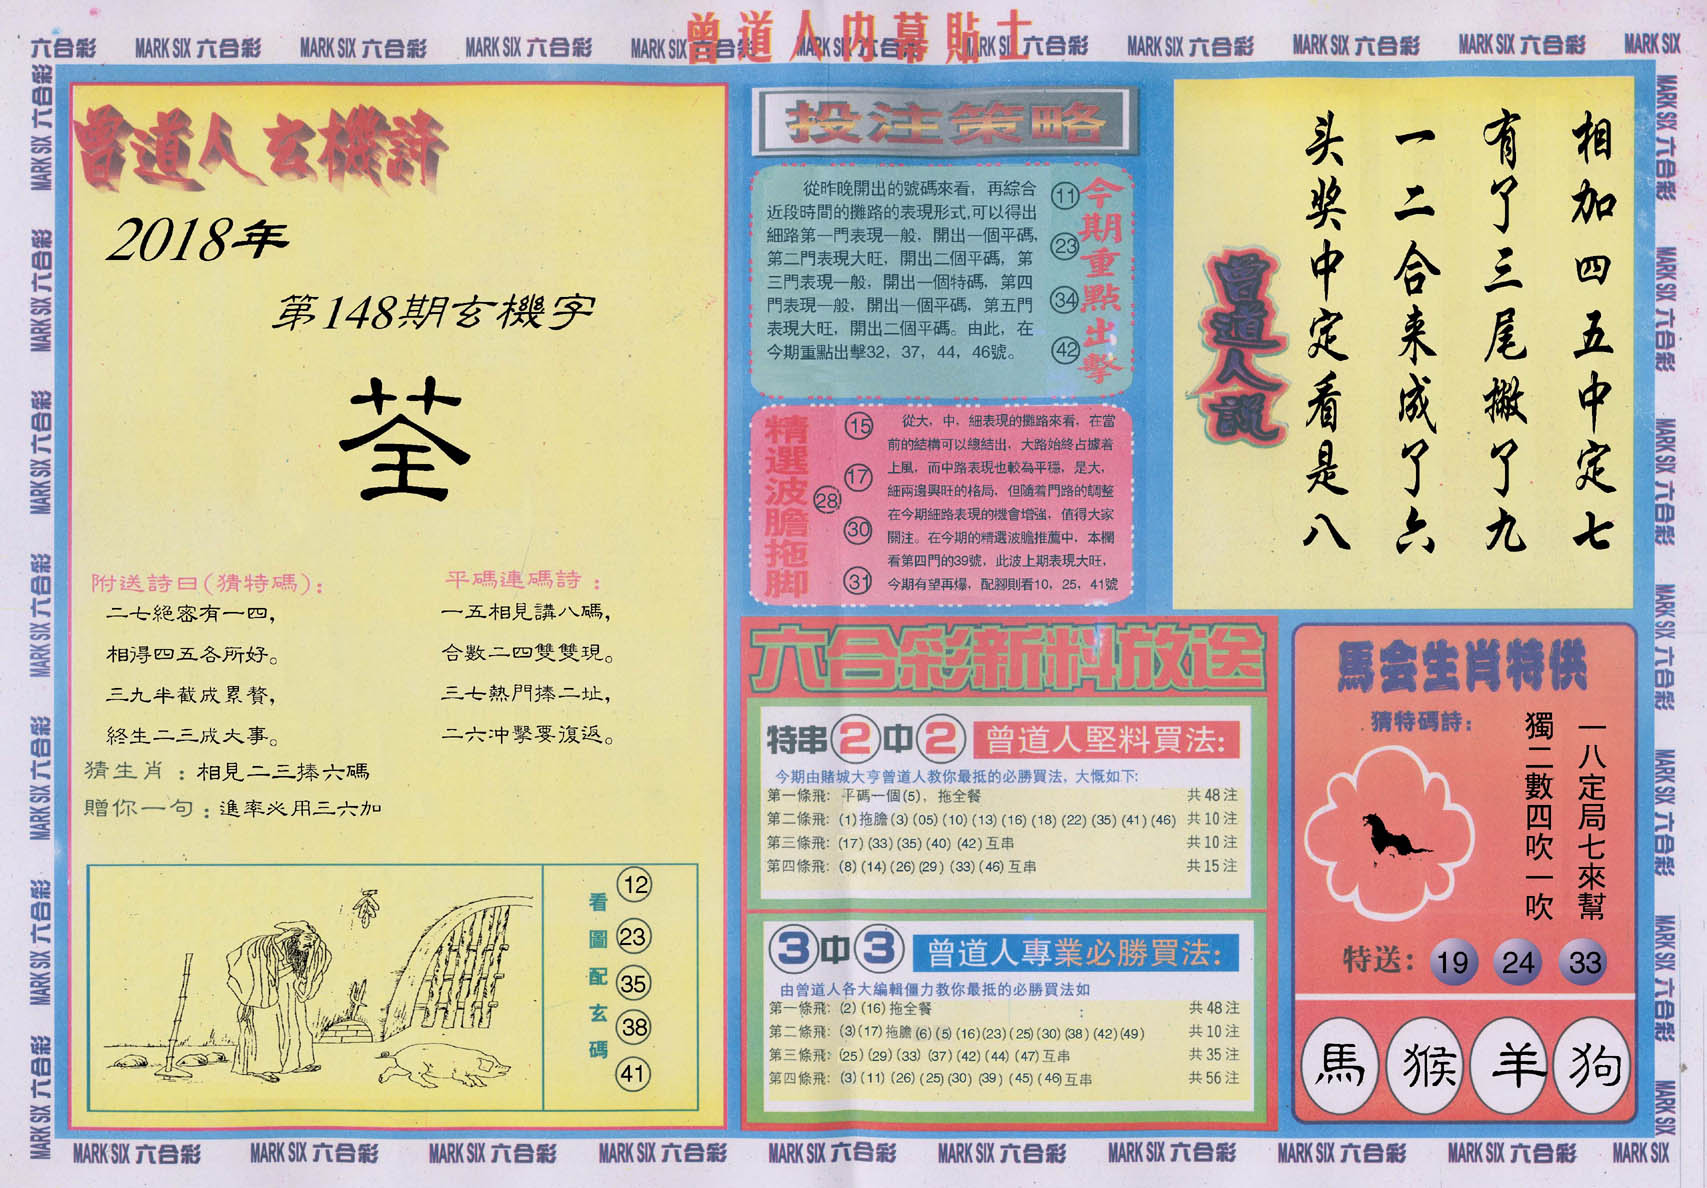 曾道人内幕貼士
六合彩 MARK SIX 六合彩 MARK SIX 六合彩 MARK SIX 六合彩 MARK SIX 六合彩 MARK SIX 六合彩 MARK SIX 六合彩 MARK SIX 六合彩 MARK SIX 六合彩 MARK SIX 六合彩 MARK SIX
曾道人玄機詩
2018年
第148期玄機字
荃
附送詩曰(猜特碼):
二七絕密有一四,
相得四五各所好。
三九半截成累贅,
終生二三成大事。
平碼連碼詩:
一五相見講八碼,
合數二四雙雙現。
三七熱門捧二址,
二六冲擊要復返。
猜生肖:相見二三捧六碼
贈你一句:進率必用三六加
看圖配玄碼
12
23
35
38
41
投注策略
從昨晚開出的號碼來看，再綜合
近段時間的攤路的表現形式,可以得出
細路第一門表現一般，開出一個平碼,
第二門表現大旺，開出二個平碼，第
三門表現一般，開出一個特碼，第四
門表現一般，開出一個平碼，第五門
表現大旺，開出二個平碼。由此，在
今期重點出擊32，37，44，46號。
11
23
34
42
今期重點出擊
精選波膽拖脚
15
17
28
30
31
從大，中，細表現的攤路來看，在當
前的結構可以總結出，大路始終占據着
上風，而中路表現也較為平穩，是大，
細兩邊興旺的格局，但隨着門路的調整
在今期細路表現的機會增強，值得大家
關注。在今期的精選波膽推薦中，本欄
看第四門的39號，此波上期表現大旺，
今期有望再爆，配腳則看10，25，41號
相加四五中定七
有了三尾撇了九
一二合来成了六
头奖中定看是八
曾道人説
六合彩新料放送
特串2中2 曾道人堅料買法:
今期由賭城大亨曾道人教你最抵的必勝買法，大慨如下:
第一條飛: 平碼一個(5)，拖全餐 共48注
第二條飛: (1)拖膽(3)(05)(10)(13)(16)(18)(22)(35)(41)(46) 共10注
第三條飛: (17)(33)(35)(40)(42)互串 共10注
第四條飛: (8)(14)(26)(29)(33)(46)互串 共15注
3中3 曾道人專業必勝買法:
由曾道人各大編輯僵力教你最抵的必勝買法如
第一條飛: (2)(16)拖全餐 共48注
第二條飛: (3)(17)拖膽(6)(5)(16)(23)(25)(30)(38)(42)(49) 共10注
第三條飛: (25)(29)(33)(37)(42)(44)(47)互串 共35注
第四條飛: (3)(11)(26)(25)(30)(39)(45)(46)互串 共56注
馬会生肖特供
猜特碼詩:
一八定局七來幫
獨二數四吹一吹
特送: 19 24 33
馬 猴 羊 狗
MARK SIX 六合彩 MARK SIX 六合彩 MARK SIX 六合彩 MARK SIX 六合彩 MARK SIX 六合彩 MARK SIX 六合彩 MARK SIX 六合彩 MARK SIX 六合彩 MARK SIX 六合彩 MARK SIX
MARK SIX 六合彩 MARK SIX 六合彩 MARK SIX 六合彩 MARK SIX 六合彩 MARK SIX 六合彩 MARK SIX 六合彩 MARK SIX 六合彩
MARK SIX 六合彩 MARK SIX 六合彩 MARK SIX 六合彩 MARK SIX 六合彩 MARK SIX 六合彩 MARK SIX 六合彩 MARK SIX